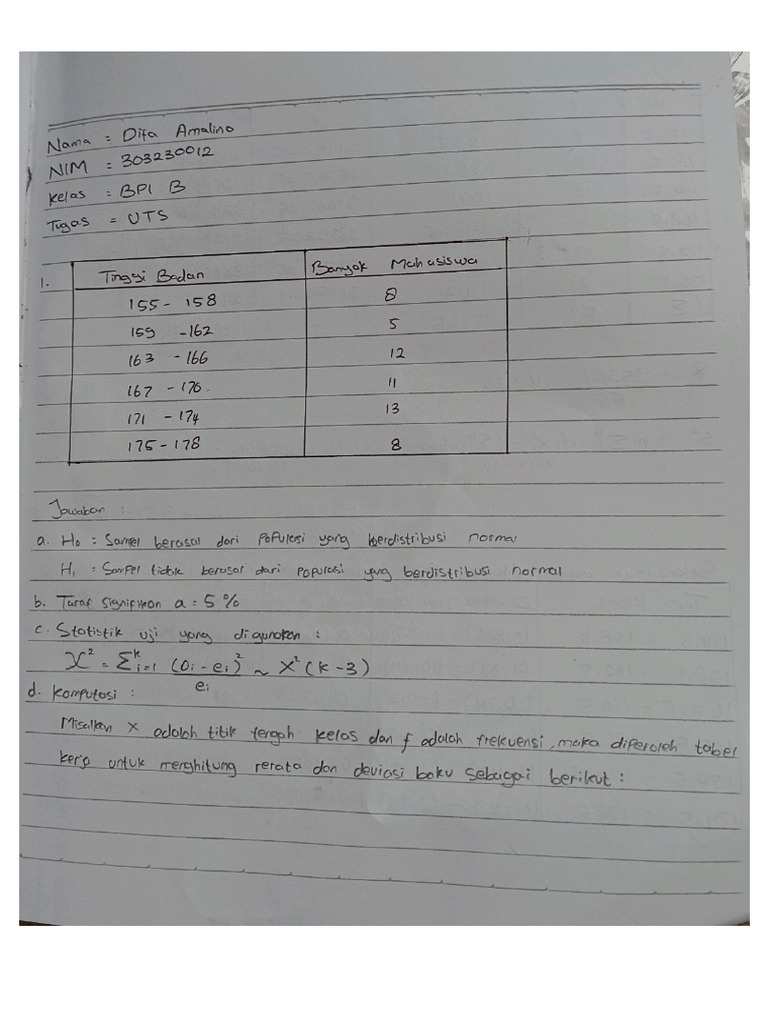 Nama : Difa Amalina
NIM : 303230012
Kelas : BPI B
Tugas = UTS
1. Tinggi Badan Banyak Mahasiswa
155 - 158 8
159 - 162 5
163 - 166 12
167 - 170 11
171 - 174 13
175 - 178 8
Jawaban :
a. H₀ : Sampel berasal dari Populasi yang berdistribusi normal
H₁ : Sampel tidak berasal dari populasi yang berdistribusi normal
b. Taraf Signifikan a : 5 %
c. Statistik uji yang digunakan :
X² = Σᵏᵢ₌₁ (Oᵢ - eᵢ)² / eᵢ ~ X² (k - 3)
d. Komputasi :
Misalkan x adalah titik tengah kelas dan f adalah frekuensi, maka diperoleh tabel
kerja untuk menghitung rerata dan deviasi baku sebagai berikut :